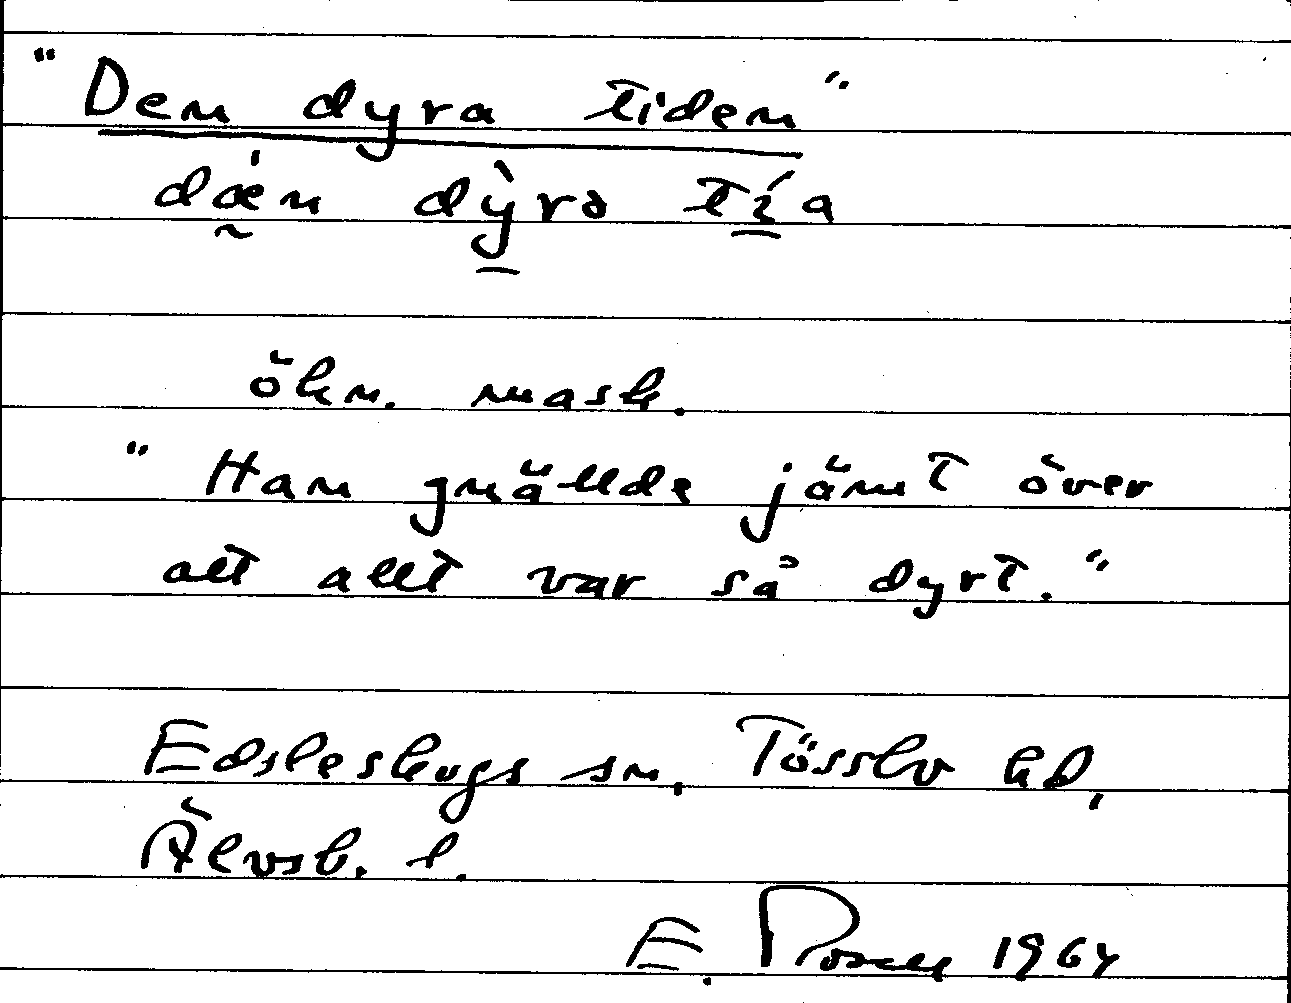 "Den dyra tiden"
dǽ̰n dỳ̱rə tí̱a
ökn. mask.
"Han gnällde jämt över
att allt var så dyrt."
Edsleskogs sn, Tössbo hd,
Älvsb. l.
E. 1964